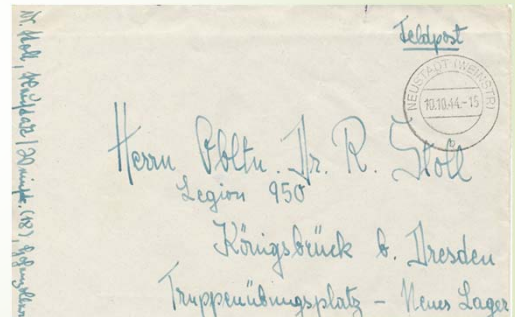 Feldpost
NEUSTADT (WEINSTR)
10.10.44.-15
b
Herrn Obltn. Dr. R. Stoll
Legion 950
Königsbrück b. Dresden
Truppenübungsplatz – Neues Lager
Dr. Stoll, Neustadt / Weinstr. (18),